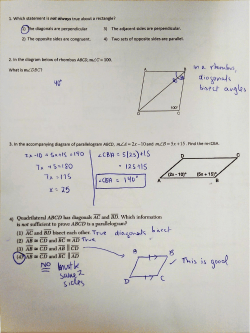 1. Which statement is not always true about a rectangle?
1) The diagonals are perpendicular.
3) The adjacent sides are perpendicular.
2) The opposite sides are congruent.
4) Two sets of opposite sides are parallel.
2. In the diagram below of rhombus ABCD, m∠C = 100.
What is m∠DBC?
40°
in a rhombus,
diagonals
bisect angles
A
B
D
C
100°
3. In the accompanying diagram of parallelogram ABCD, m∠A = 2x - 10 and m∠B = 5x + 15. Find the m∠CBA.
2x - 10 + 5x + 15 = 180
7x + 5 = 180
7x = 175
x = 25
∠CBA = 5(25) + 15
= 125 + 15
∠CBA = 140°
(2x - 10)°
(5x + 15)°
4) Quadrilateral ABCD has diagonals AC and BD. Which information
is not sufficient to prove ABCD is a parallelogram?
(1) AC and BD bisect each other. True diagonals bisect
(2) AB ≅ CD and BC ≅ AD True
(3) AB ≅ CD and AB ∥ CD
(4) AB ≅ CD and BC ∥ AD
NO must be
same 2
sides
A
B
D
C
This is good